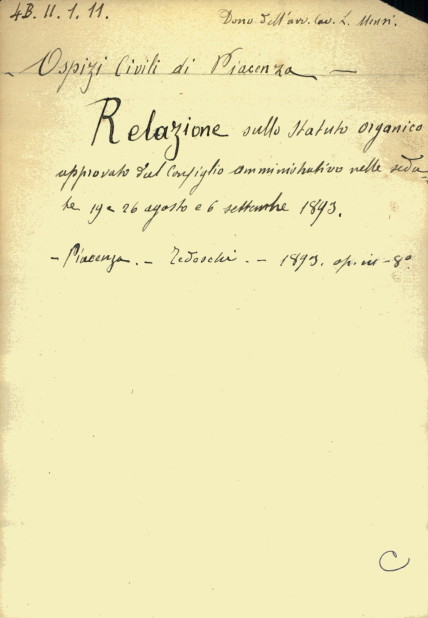 4B. II. 1. 11.
Dono dell'avv. Cav. L.
Ospizi Civili di Piacenza —
Relazione sullo Statuto organico
approvato dal Consiglio amministrativo nelle sedu-
te 19 e 26 agosto e 6 settembre 1893.
- Piacenza. - Tedeschi. - 1893. op. in - 8°
C